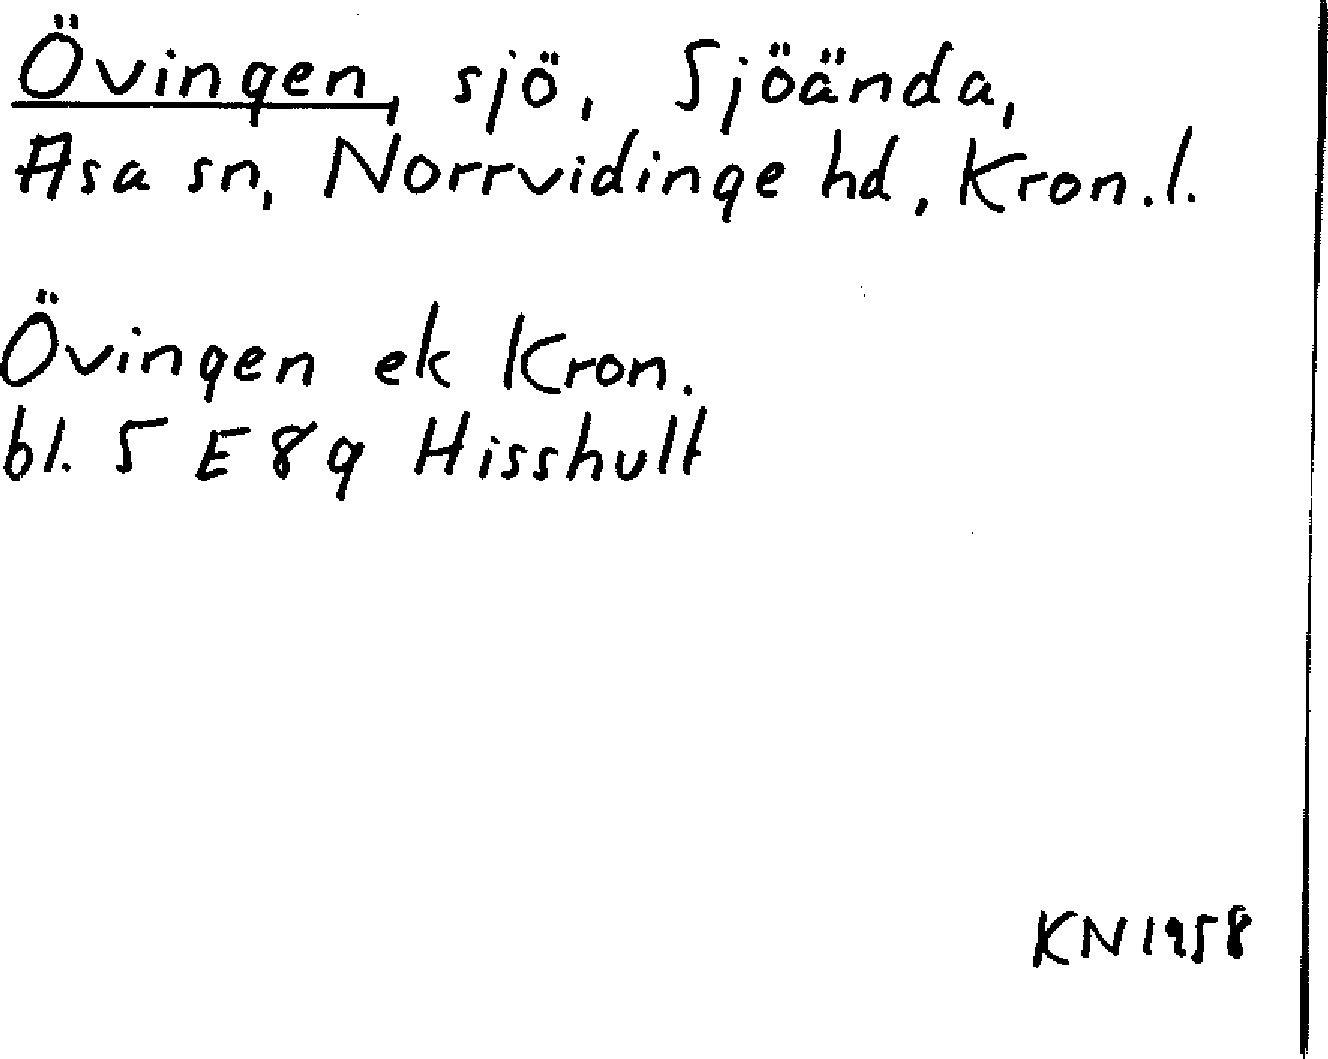 Övingen, sjö, Sjöända,
Asa sn, Norrvidinge hd, Kron.l.
Övingen ek Kron.
bl. 5 E 8 g Hisshult
KN 1958